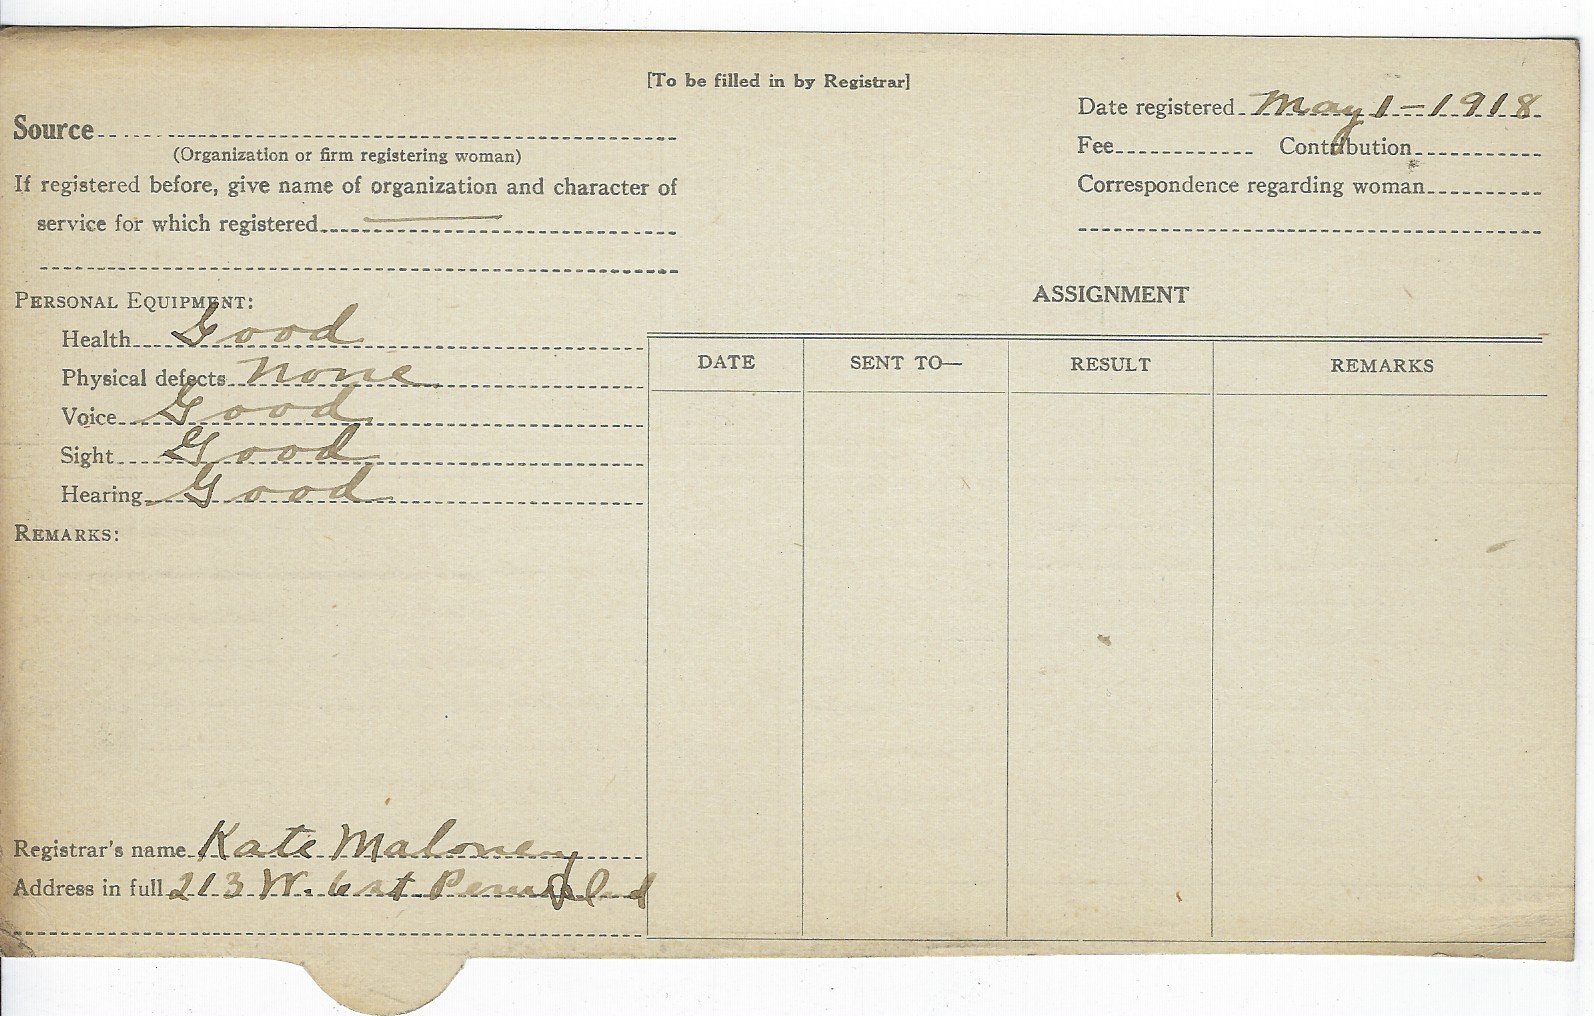 [To be filled in by Registrar]
Date registered May 1-1918
Source
(Organization or firm registering woman)
Fee Contribution
If registered before, give name of organization and character of
service for which registered
Correspondence regarding woman
PERSONAL EQUIPMENT:
Health Good
Physical defects None
Voice Good
Sight Good
Hearing Good
REMARKS:
ASSIGNMENT
DATE SENT TO— RESULT REMARKS
Registrar's name Kate Maloney
Address in full 213 W. 6 st. Peru Ind